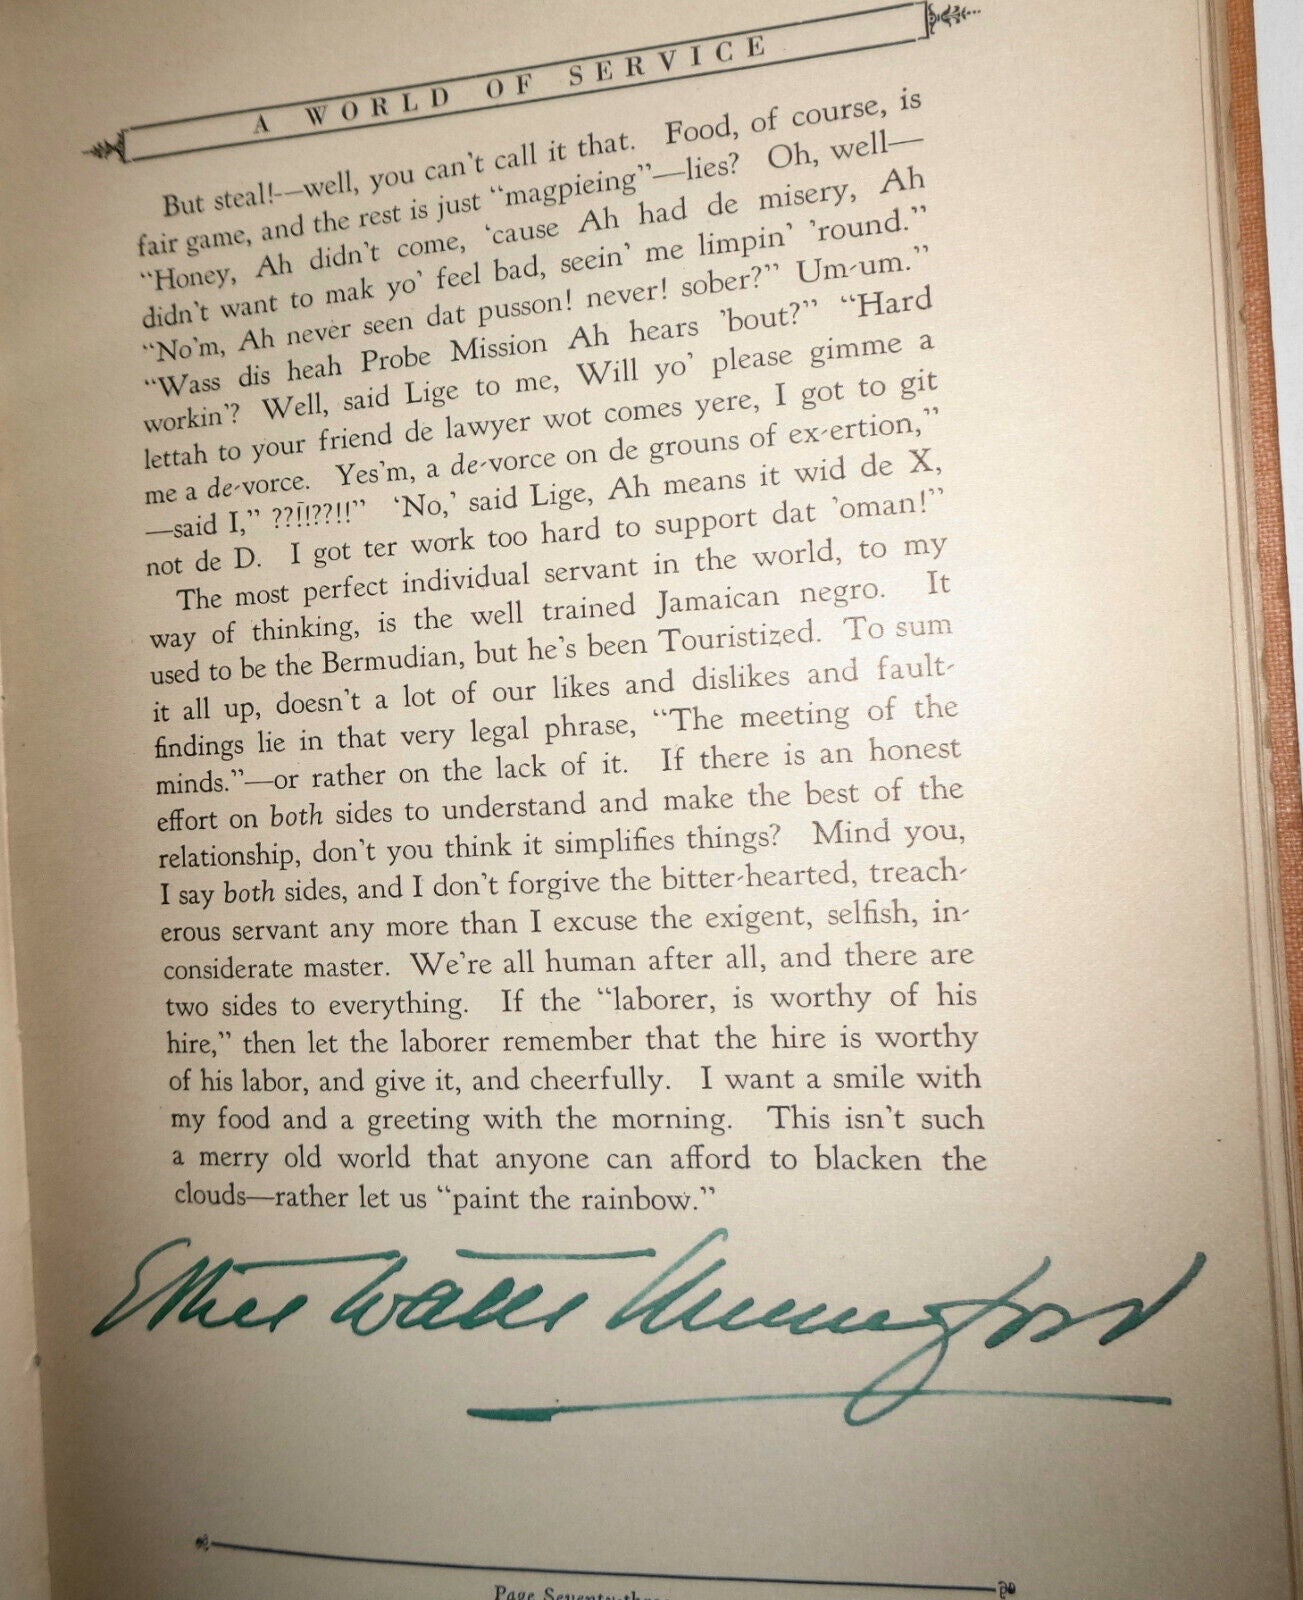 A WORLD OF SERVICE
But steal!--well, you can't call it that. Food, of course, is
fair game, and the rest is just "magpieing"—lies? Oh, well—
"Honey, Ah didn't come, 'cause Ah had de misery, Ah
didn't want to mak yo' feel bad, seein' me limpin' 'round."
"No'm, Ah never seen dat pusson! never! sober?" Um-um."
"Wass dis heah Probe Mission Ah hears 'bout?" "Hard
workin'? Well, said Lige to me, Will yo' please gimme a
lettah to your friend de lawyer wot comes yere, I got to git
me a de-vorce. Yes'm, a de-vorce on de grouns of ex-ertion,"
—said I," ??!!??!!" 'No,' said Lige, Ah means it wid de X,
not de D. I got ter work too hard to support dat 'oman!"
The most perfect individual servant in the world, to my
way of thinking, is the well trained Jamaican negro. It
used to be the Bermudian, but he's been Touristized. To sum
it all up, doesn't a lot of our likes and dislikes and fault-
findings lie in that very legal phrase, "The meeting of the
minds."—or rather on the lack of it. If there is an honest
effort on both sides to understand and make the best of the
relationship, don't you think it simplifies things? Mind you,
I say both sides, and I don't forgive the bitter-hearted, treach-
erous servant any more than I excuse the exigent, selfish, in-
considerate master. We're all human after all, and there are
two sides to everything. If the "laborer, is worthy of his
hire," then let the laborer remember that the hire is worthy
of his labor, and give it, and cheerfully. I want a smile with
my food and a greeting with the morning. This isn't such
a merry old world that anyone can afford to blacken the
clouds—rather let us "paint the rainbow."
Ethel Watts Mumford
Page Seventy-three